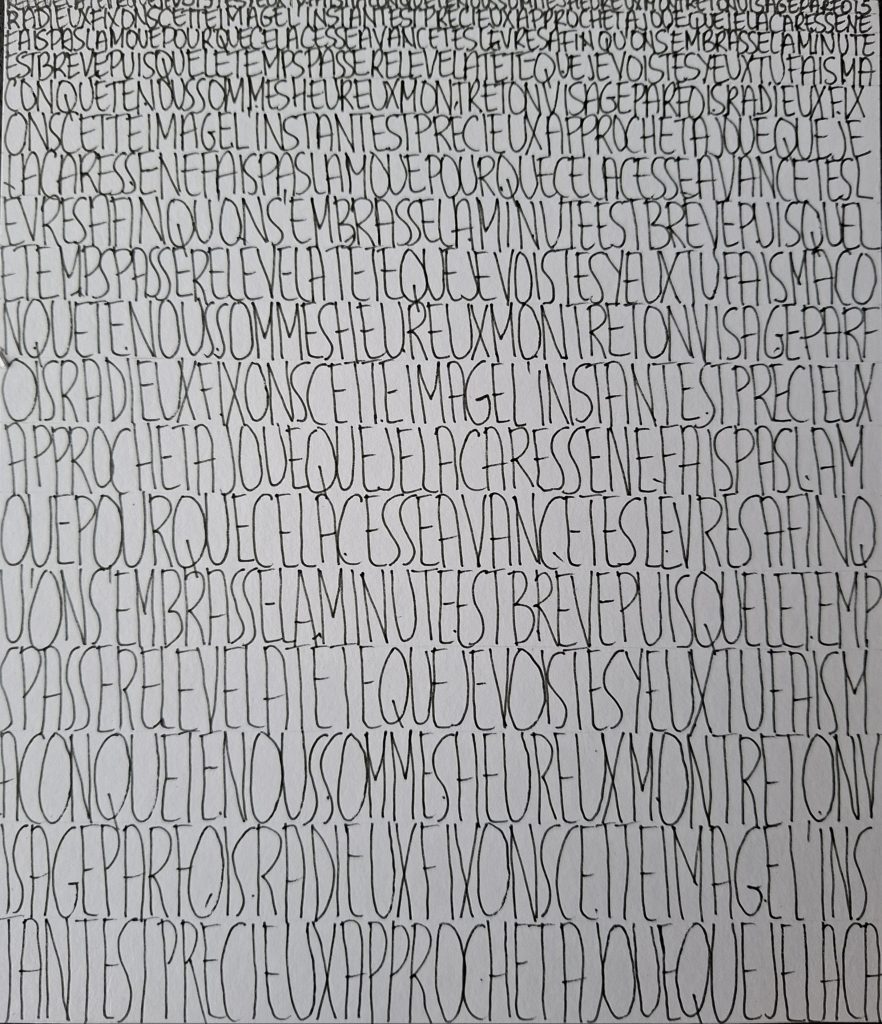 RADIEUXFIXONSCETTEIMAGEL'INSTANTESTPRECIEUXAPPROCHETAJOUEQUEJELACARESSENE
FAISPASLAMOUEPOURQUECELACESSEAVANCETESLEVRESAFINQU'ONS'EMBRASSELAMINUTE
ESTBREVEPUISQUELETEMPSPASSERELEVELATETEQUEJEVOISTESYEUXTUFAISMA
CONQUETENOUSSOMMESHEUREUXMONTRETONVISAGEPARFOISRADIEUXFIX
ONSCETTEIMAGEL'INSTANTESTPRECIEUXAPPROCHETAJOUEQUEJE
LACARESSENEFAISPASLAMOUEPOURQUECELACESSEAVANCETESL
EVRESAFINQU'ONS'EMBRASSELAMINUTEESTBREVEPUISQUEL
ETEMPSPASSERELEVELATETEQUEJEVOISTESYEUXTUFAISMACO
NQUETENOUSSOMMESHEUREUXMONTRETONVISAGEPARF
OISRADIEUXFIXONSCETTEIMAGEL'INSTANTESTPRECIEUX
APPROCHETAJOUEQUEJELACARESSENEFAISPASLAM
OUEPOURQUECELACESSEAVANCETESLEVRESAFINQ
U'ONS'EMBRASSELAMINUTEESTBREVEPUISQUELETEMP
SPASSERELEVELATÊTEQUEJEVOISTESYEUXTUFAISM
ACONQUETENOUSSOMMESHEUREUXMONTRETONV
ISAGEPARFOISRADIEUXFIXONSCETTEIMAGEL'INS
TANTESTPRECIEUXAPPROCHETAJOUEQUEJELACA